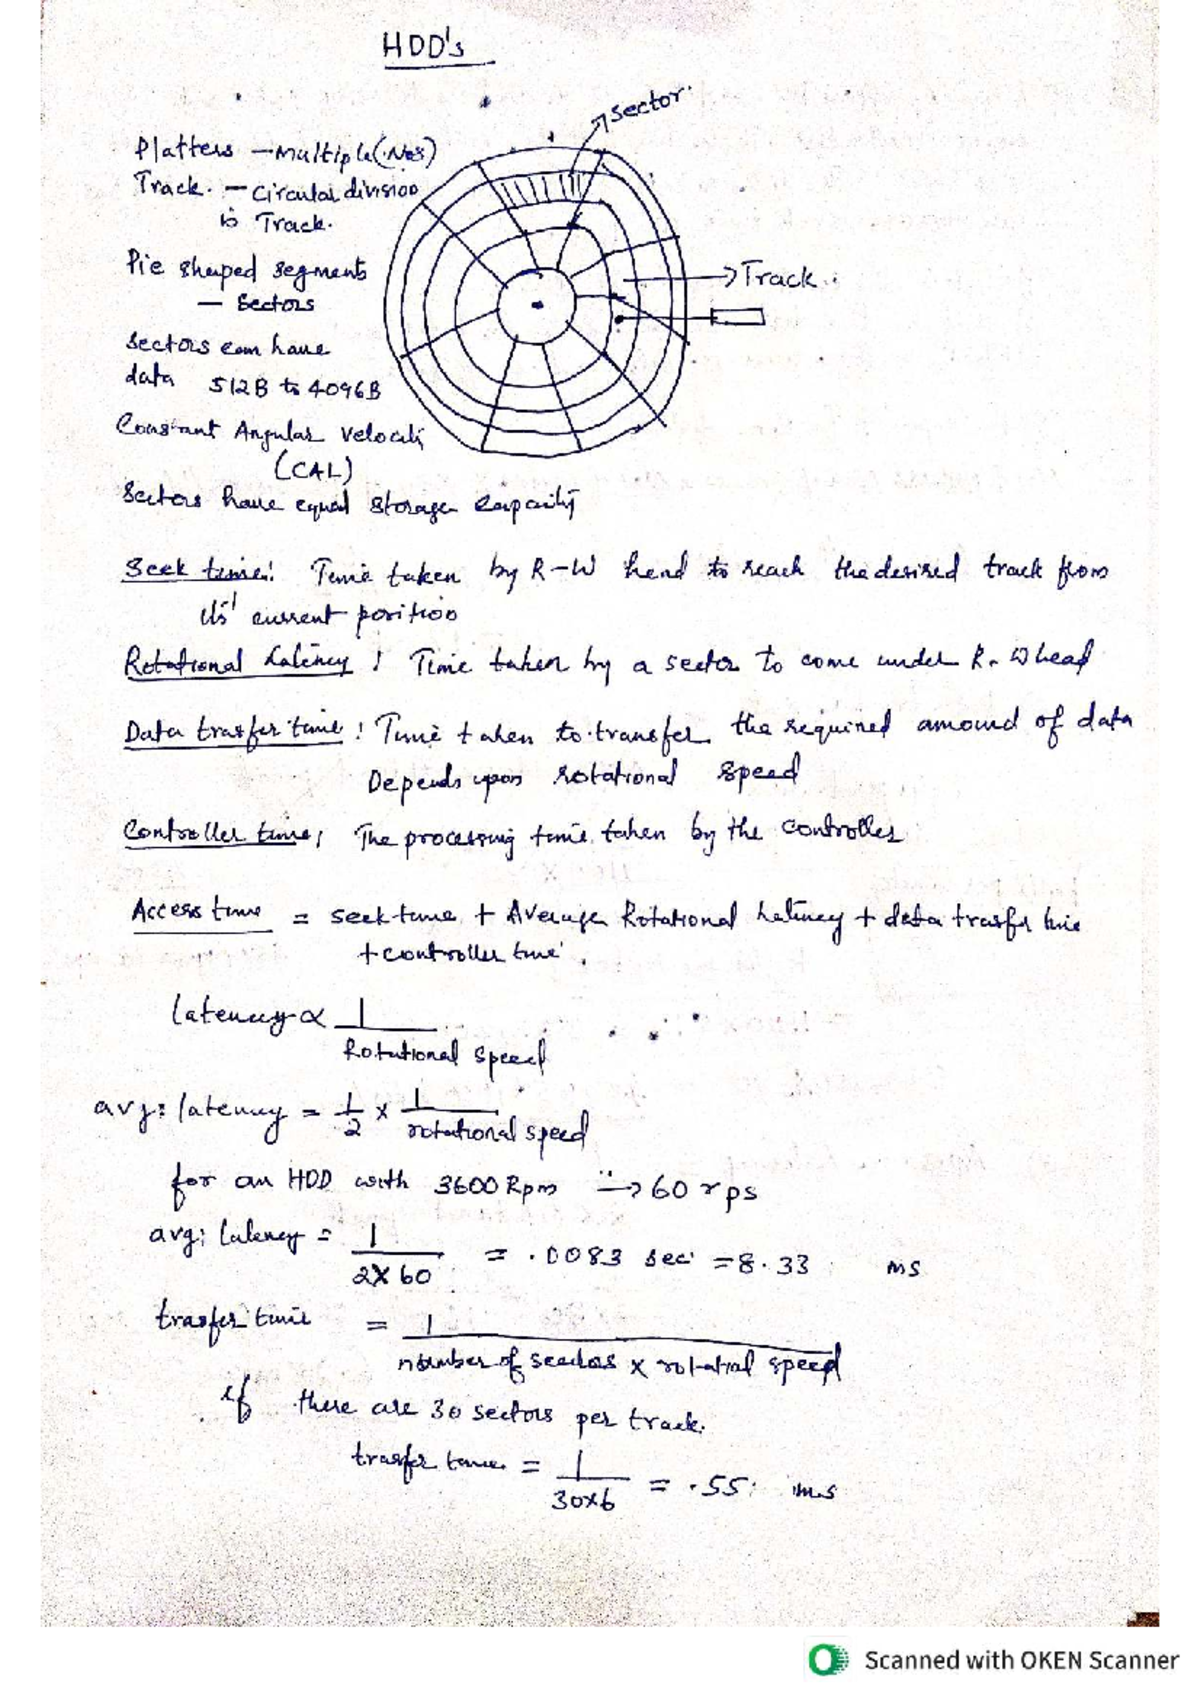 HDD's
sector.
Platters – Multiple (Nos)
Track. – Circular division
is Track.
Pie shaped segments
– Sectors
→ Track
Sectors can have
data 512B to 4096B
Constant Angular Velocity
(CAL)
Sectors have equal storage capacity
Seek time: Time taken by R-W head to reach the desired track from
its' current position
Rotational Latency : Time taken by a sector to come under R-W head
Data trasfer time : Time taken to transfer the required amound of data
Depends upon rotational speed
Controller time; The processing time taken by the controller
Access time = seek time + Average Rotational Latency + data trasfer time
+ controller time.
Latency ∝ 1
Rotational speed
avg: latency = 1/2 × 1
rotational speed
for an HDD with 3600 Rpm → 60 rps
avg: latency = 1 / 2×60 = .0083 sec = 8.33 ms
trasfer time = 1
number of sectors × rotatial speed
if there are 30 sectors per track.
trasfer time = 1 / 30×6 = .55 ms
Scanned with OKEN Scanner